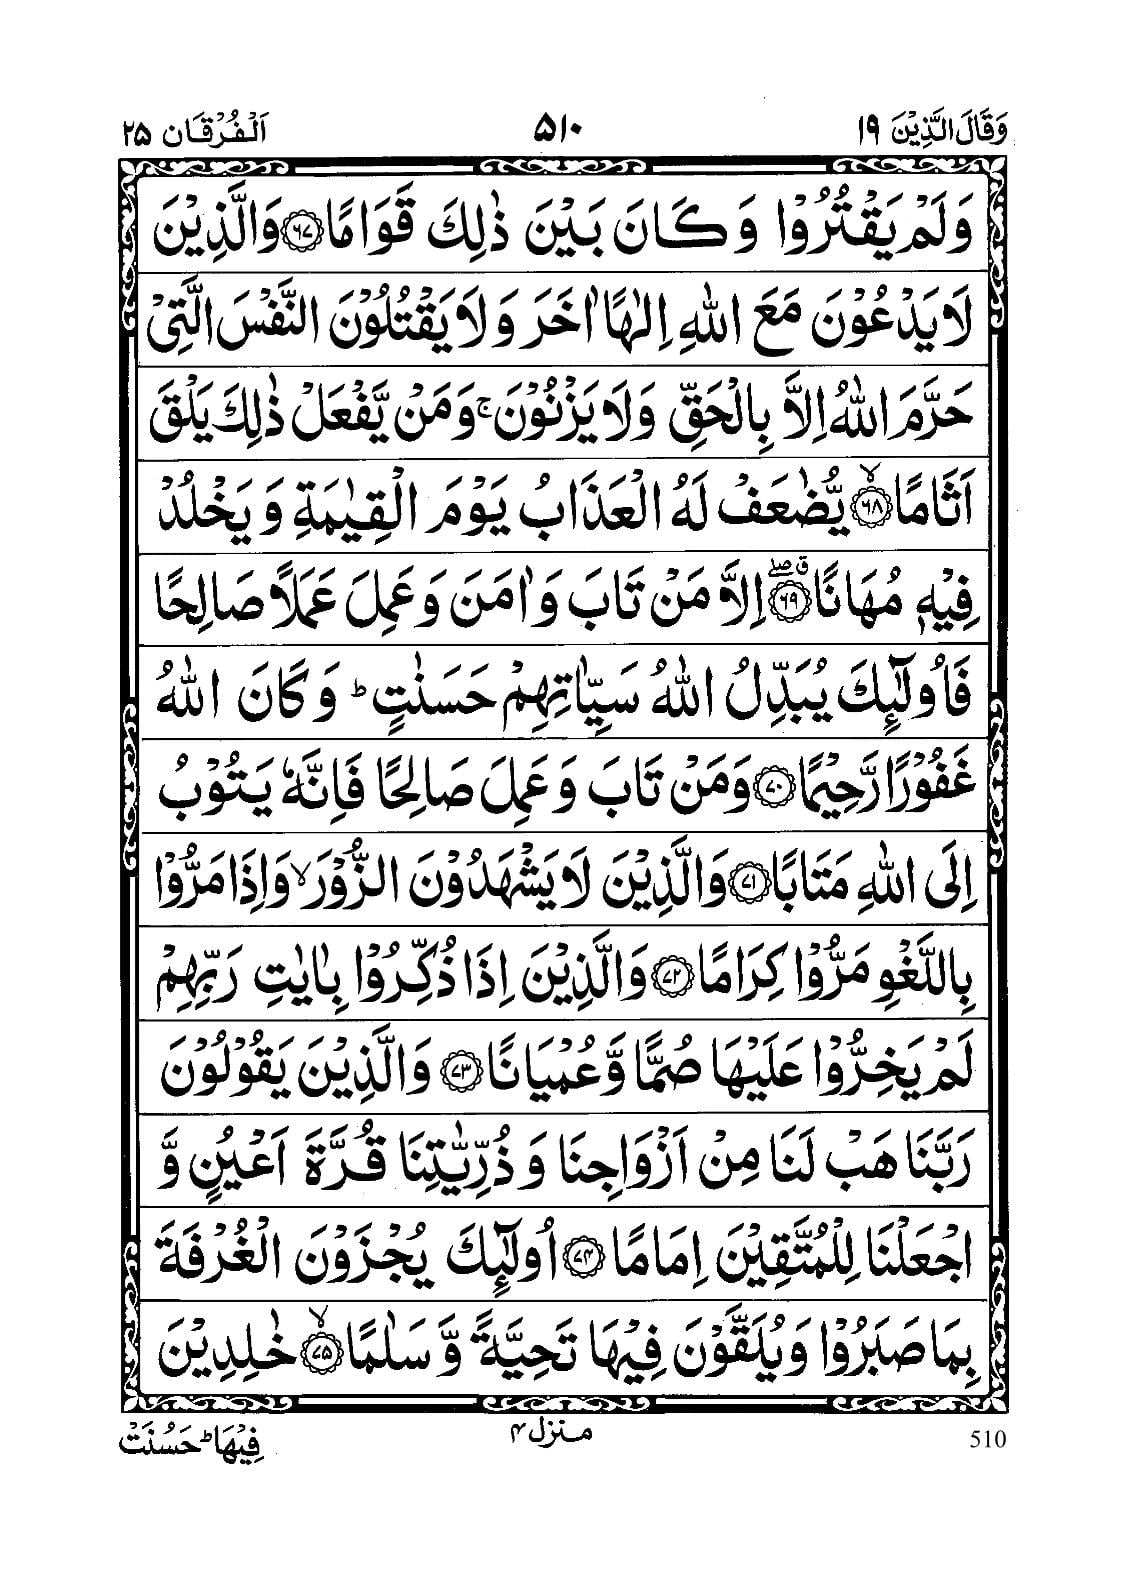 وَقَالَ الَّذِيْنَ ١٩ ۵۱۰ اَلْفُرْقَان ٢۵
وَلَمْ يَقْتُرُوْا وَكَانَ بَيْنَ ذٰلِكَ قَوَامًا ﴿۶۷﴾ وَالَّذِيْنَ
لَا يَدْعُوْنَ مَعَ اللّٰهِ اِلٰهًا اٰخَرَ وَلَا يَقْتُلُوْنَ النَّفْسَ الَّتِيْ
حَرَّمَ اللّٰهُ اِلَّا بِالْحَقِّ وَلَا يَزْنُوْنَ ۚ وَمَنْ يَّفْعَلْ ذٰلِكَ يَلْقَ
اَثَامًا ﴿۶۸﴾ۙ يُّضٰعَفْ لَهُ الْعَذَابُ يَوْمَ الْقِيٰمَةِ وَيَخْلُدْ
فِيْهٖ مُهَانًا ﴿۶۹﴾ۖق اِلَّا مَنْ تَابَ وَاٰمَنَ وَعَمِلَ عَمَلًا صَالِحًا
فَاُولٰٓئِكَ يُبَدِّلُ اللّٰهُ سَيِّاٰتِهِمْ حَسَنٰتٍ ؕ وَكَانَ اللّٰهُ
غَفُوْرًا رَّحِيْمًا ﴿۷۰﴾ وَمَنْ تَابَ وَعَمِلَ صَالِحًا فَاِنَّهٗ يَتُوْبُ
اِلَى اللّٰهِ مَتَابًا ﴿۷۱﴾ وَالَّذِيْنَ لَا يَشْهَدُوْنَ الزُّوْرَ ۙ وَاِذَا مَرُّوْا
بِاللَّغْوِ مَرُّوْا كِرَامًا ﴿۷۲﴾ وَالَّذِيْنَ اِذَا ذُكِّرُوْا بِاٰيٰتِ رَبِّهِمْ
لَمْ يَخِرُّوْا عَلَيْهَا صُمًّا وَّعُمْيَانًا ﴿۷۳﴾ وَالَّذِيْنَ يَقُوْلُوْنَ
رَبَّنَا هَبْ لَنَا مِنْ اَزْوَاجِنَا وَذُرِّيّٰتِنَا قُرَّةَ اَعْيُنٍ وَّ
اجْعَلْنَا لِلْمُتَّقِيْنَ اِمَامًا ﴿۷۴﴾ اُولٰٓئِكَ يُجْزَوْنَ الْغُرْفَةَ
بِمَا صَبَرُوْا وَيُلَقَّوْنَ فِيْهَا تَحِيَّةً وَّسَلٰمًا ﴿۷۵﴾ۙ خٰلِدِيْنَ
510 منزل ۴ فِيْهَا ؕ حَسُنَتْ